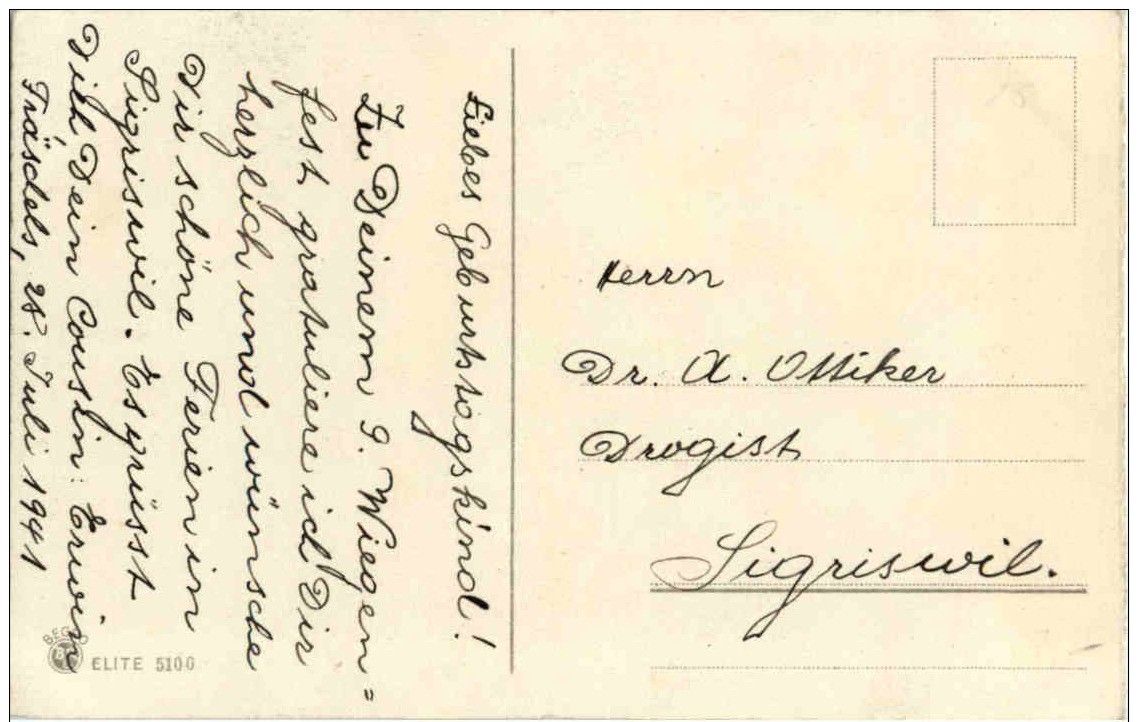 Liebes Geburtstagskind!
Zu Deinem 9. Wiegen=
fest gratuliere ich Dir
herzlich und wünsche
Dir schöne Ferien in
Sigriswil. Es grüsst
Dich Dein Cousin: Erwin
Fräschels, 28. Juli 1941
Herrn
Dr. A. Ottiker
Drogist
Sigriswil.
ELITE 5100